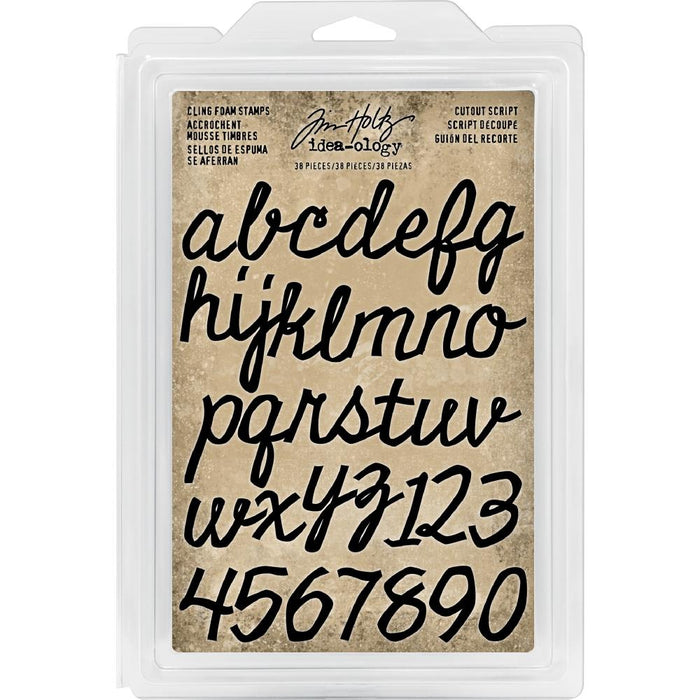 CLING FOAM STAMPS
ACCROCHENT
MOUSSE TIMBRES
SELLOS DE ESPUMA
SE AFERRAN
Tim Holtz
idea-ology
38 PIECES/38 PIÈCES/38 PIEZAS
CUTOUT SCRIPT
SCRIPT DÉCOUPÉ
GUIÓN DEL RECORTE
abcdefg
hijklmno
pqrstuv
wxyz123
4567890